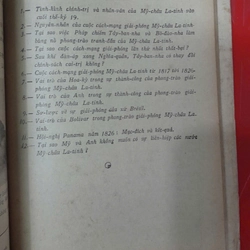 1.— Tình-hình chính-trị và nhân-văn của Mỹ-châu La-tinh cuối thế-kỷ 19.
2.— Nguyên-nhân của cuộc cách-mạng giải-phóng Mỹ-châu La-tinh.
3.— Tại sao việc Pháp chiếm Tây-ban-nha và Bồ-đào-nha làm bùng nổ phong-trào tranh-đấu của Mỹ-châu La-tinh.
4.— Tại sao cuộc cách-mạng giải-phóng lần thứ nhất thất-bại ?
5.— Sau khi đàn-áp xong Nghĩa-quân, Tây-ban-nha có thay đổi chính-sách cai-trị không ?
6.— Cuộc cách-mạng giải-phóng Mỹ-châu La-tinh từ 1815 tới 1826.
7.— Vai trò của Hoa-kỳ trong sự thành-công của phong-trào giải-phóng Mỹ-châu La-tinh.
8.— Vai trò của Anh trong sự thành-công của phong-trào giải-phóng Mỹ-châu La-tinh.
9.— Sơ-lược về sự giải-phóng dân xứ Brazil.
10.— Vai-trò của Bolivar trong phong-trào giải-phóng Mỹ-châu La-tinh.
11.— Hội-nghị Panama năm 1826 : Mục-đích và kết-quả.
12.— Tại sao Mỹ và Anh không muốn có sự liên-hiệp các nước Mỹ-châu La-tinh ?